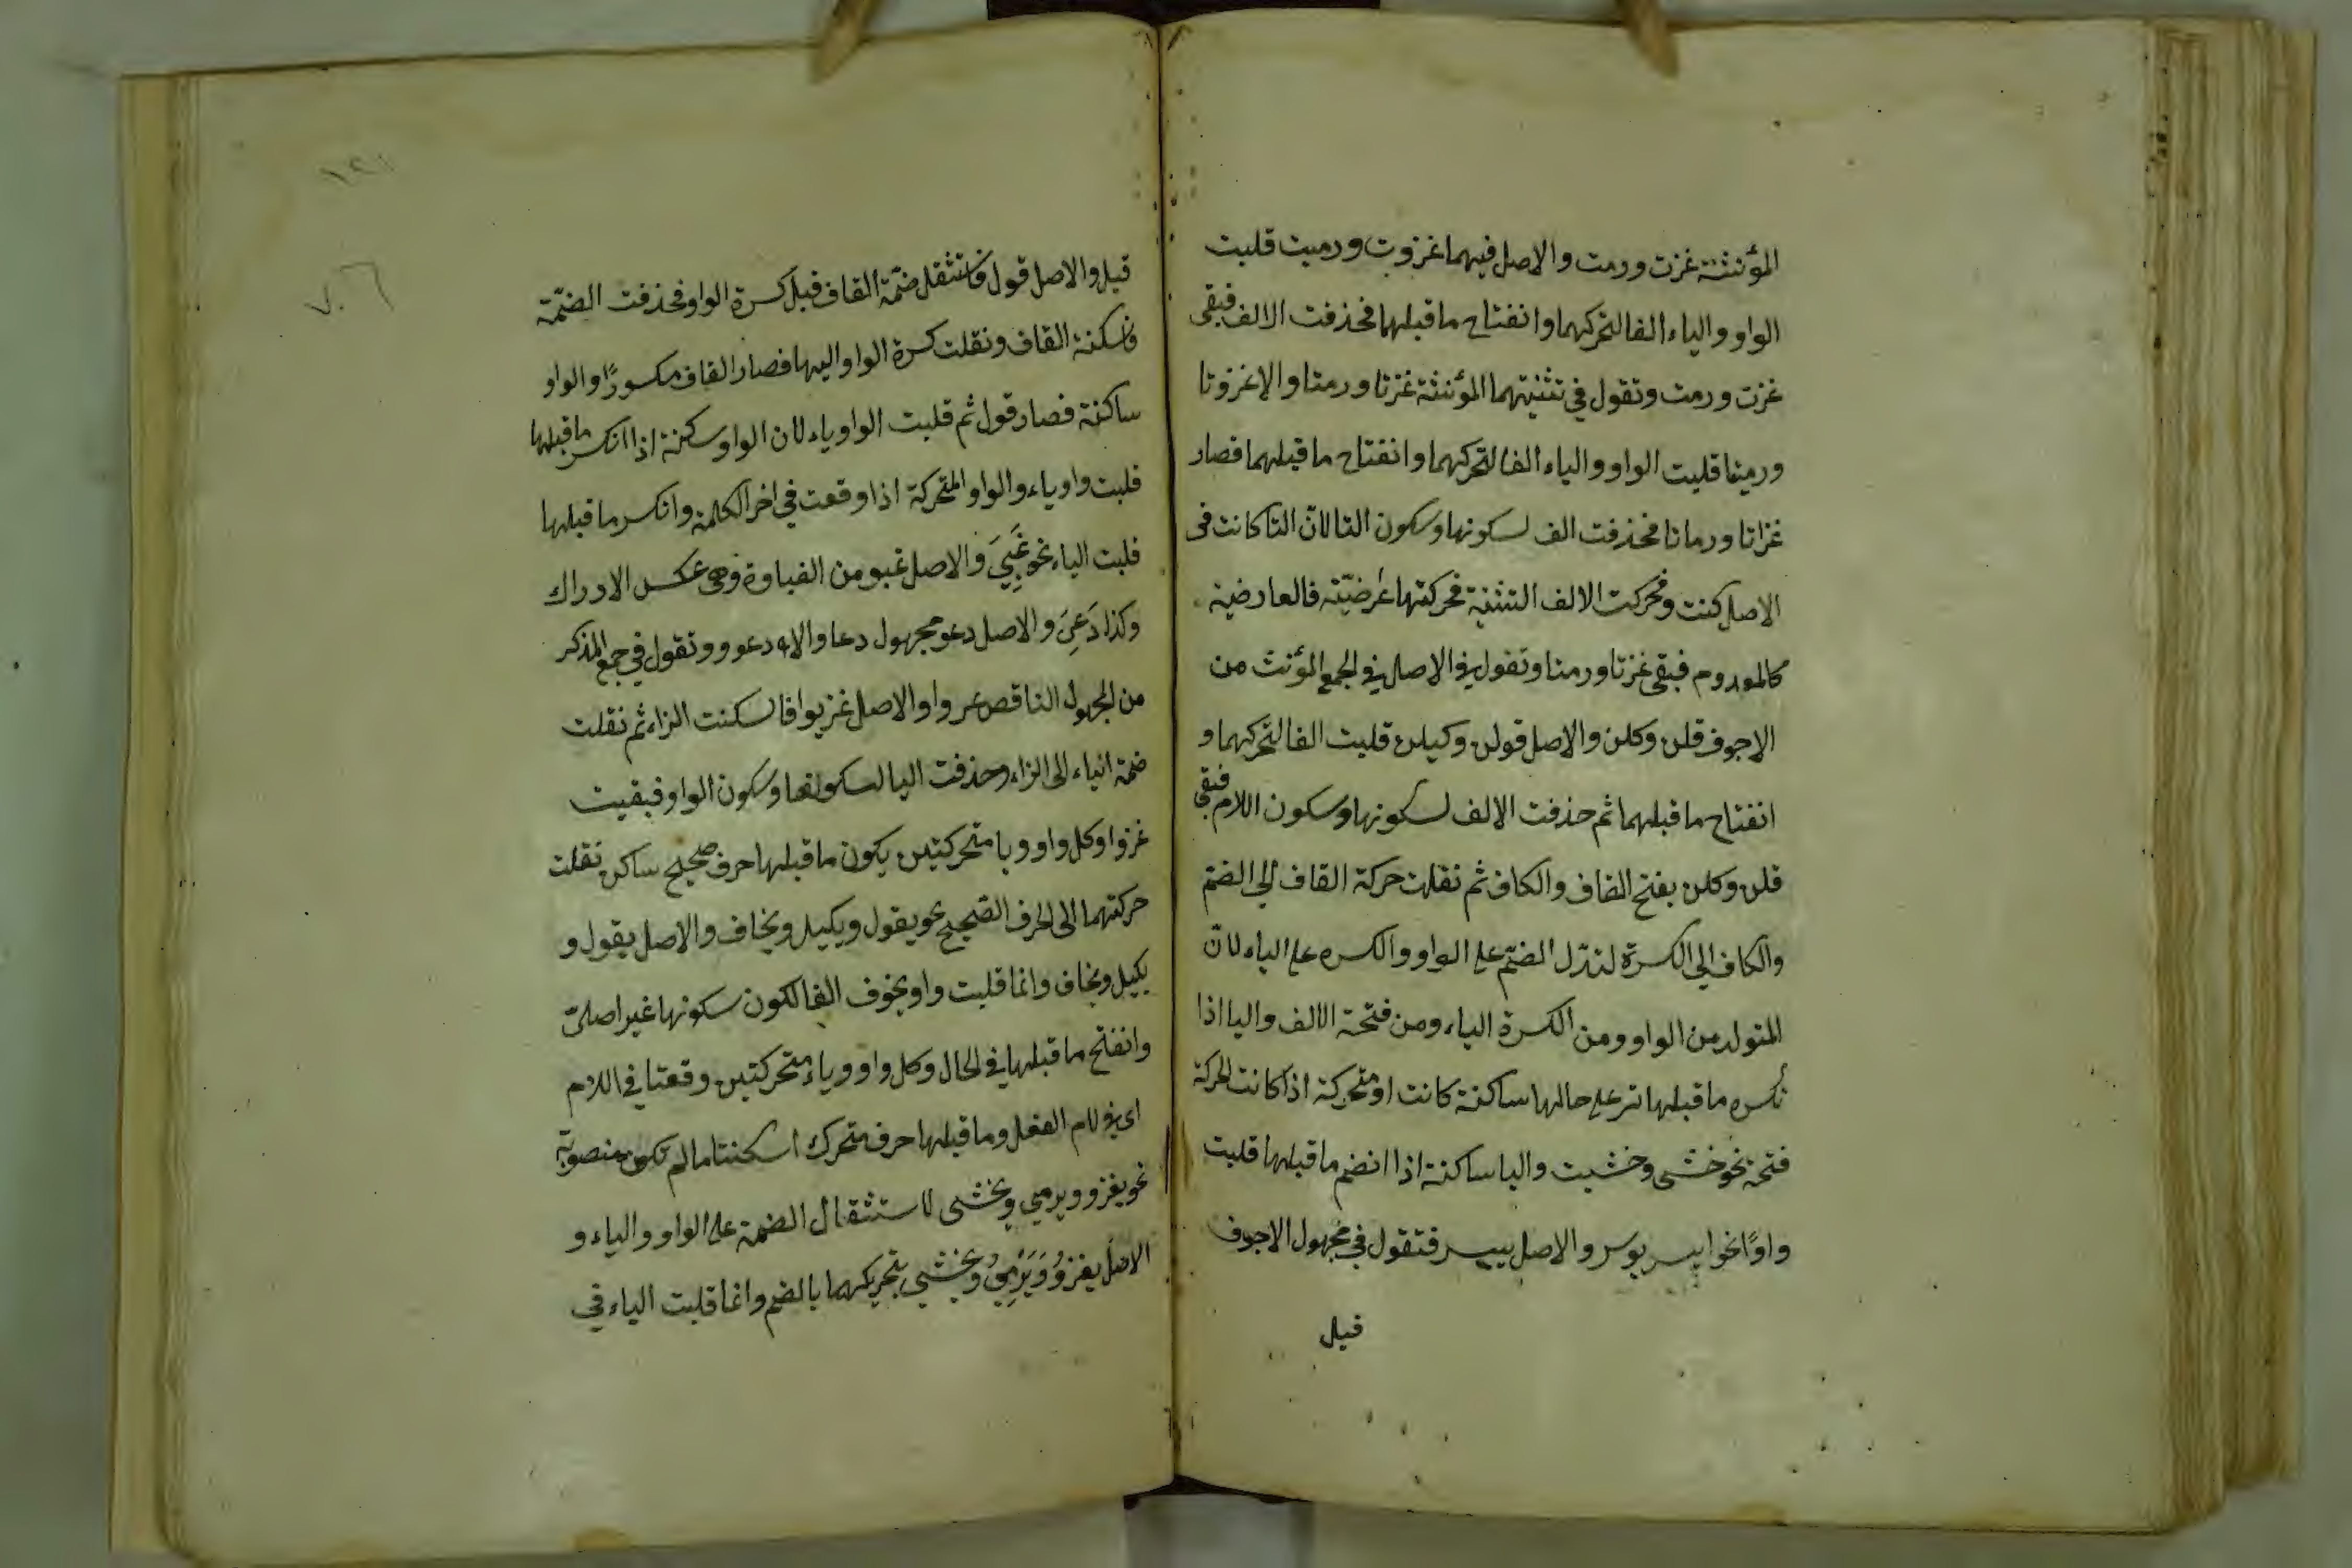 المؤنثة غزت ورمت والاصل فيهما غزوت ورميت قلبت
الواو والياء الفا لتحركهما وانفتاح ما قبلهما فحذفت الالف فبقى
غزت ورمت وتقول في تثنيتهما المؤنثة غزتا ورمتا والا غزوتا
ورميتا قلبت الواو والياء الفا لتحركهما وانفتاح ما قبلهما فصار
غزاتا ورماتا فحذفت الف لسكونها وسكون التا لان التا كانت فى
الاصل كنت وفحركت الالف التثنية فحركتها عرضيّة فالعارضية
كالمعدوم فبقى غزتا ورمتا وتقول في الاصل في الجمع المؤنث من
الاجوف قلن وكلن والاصل قولن وكيلن قلبت الفا لتحركهما و
انفتاح ما قبلهما ثم حذفت الالف لسكونها وسكون اللام فبقى
قلن وكلن بفتح القاف والكاف ثم نقلت حركة القاف الى الضم
والكاف الى الكسرة لتدل الضمّ على الواو والكسره على الياء لانّ
المتولد من الواو ومن الكسرة الياء ومن فتحة الالف واليا اذا
نكسره ما قبلها تر على حالها ساكنة كانت او متحركة اذا كانت الحركة
فتحة نحو خشى وخشيت واليا ساكنة اذا انضم ما قبلها قلبت
واوًا نحو ايسر يوسر والاصل ييسر فتقول في مجهول الاجوف
قيل
١٢١
٧٠٦
قيل والاصل قول فاستثقل ضمّة القاف قبل كسرة الواو فحذفت الضمّة
فاسكنة القاف ونقلت كسرة الواو اليها فصار القاف مكسورًا والواو
ساكنة فصار قول ثم قلبت الواو ياء لان الواو سكنة اذا انكسر ما قبلها
قلبت واو ياء والواو المتحركة اذا وقعت في اخر الكلمة وانكسر ما قبلها
قلبت الياء نحو غَبِيَ والاصل غبو من الغباوة وهى عكس الادراك
وكذا دَعِيَ والاصل دعو مجهول دعا والا دعوو وتقول في جمع المذكر
من المجهول الناقص غروا والاصل غزيوا فاسكنت الزاء ثم نقلت
ضمة الياء الى الزاء وحذفت اليا لسكونها وسكون الواو فبقيت
غزوا وكل واو ويا متحركتين يكون ما قبلها حرف صحيح ساكن نقلت
حركتهما الى الحرف الصحيح نحو يقول ويكيل ويخاف والاصل يقول و
يكيل ويخاف وانما قلبت واو يخوف الفا لكون سكونها غير اصلىّ
وانفتح ما قبلها في الحال وكل واو وياء متحركتين وقعتا في اللام
اى في لام الفعل وما قبلها حرف متحرك اسكنتا ما لم تكن منصوبة
نحو يغزو ويرمي ويخشى لاستثقال الضمة على الواو والياء و
الاصل يغزوُ ويَرْمِيُ ويخشي بتحريكهما بالضم وانما قلبت الياء في